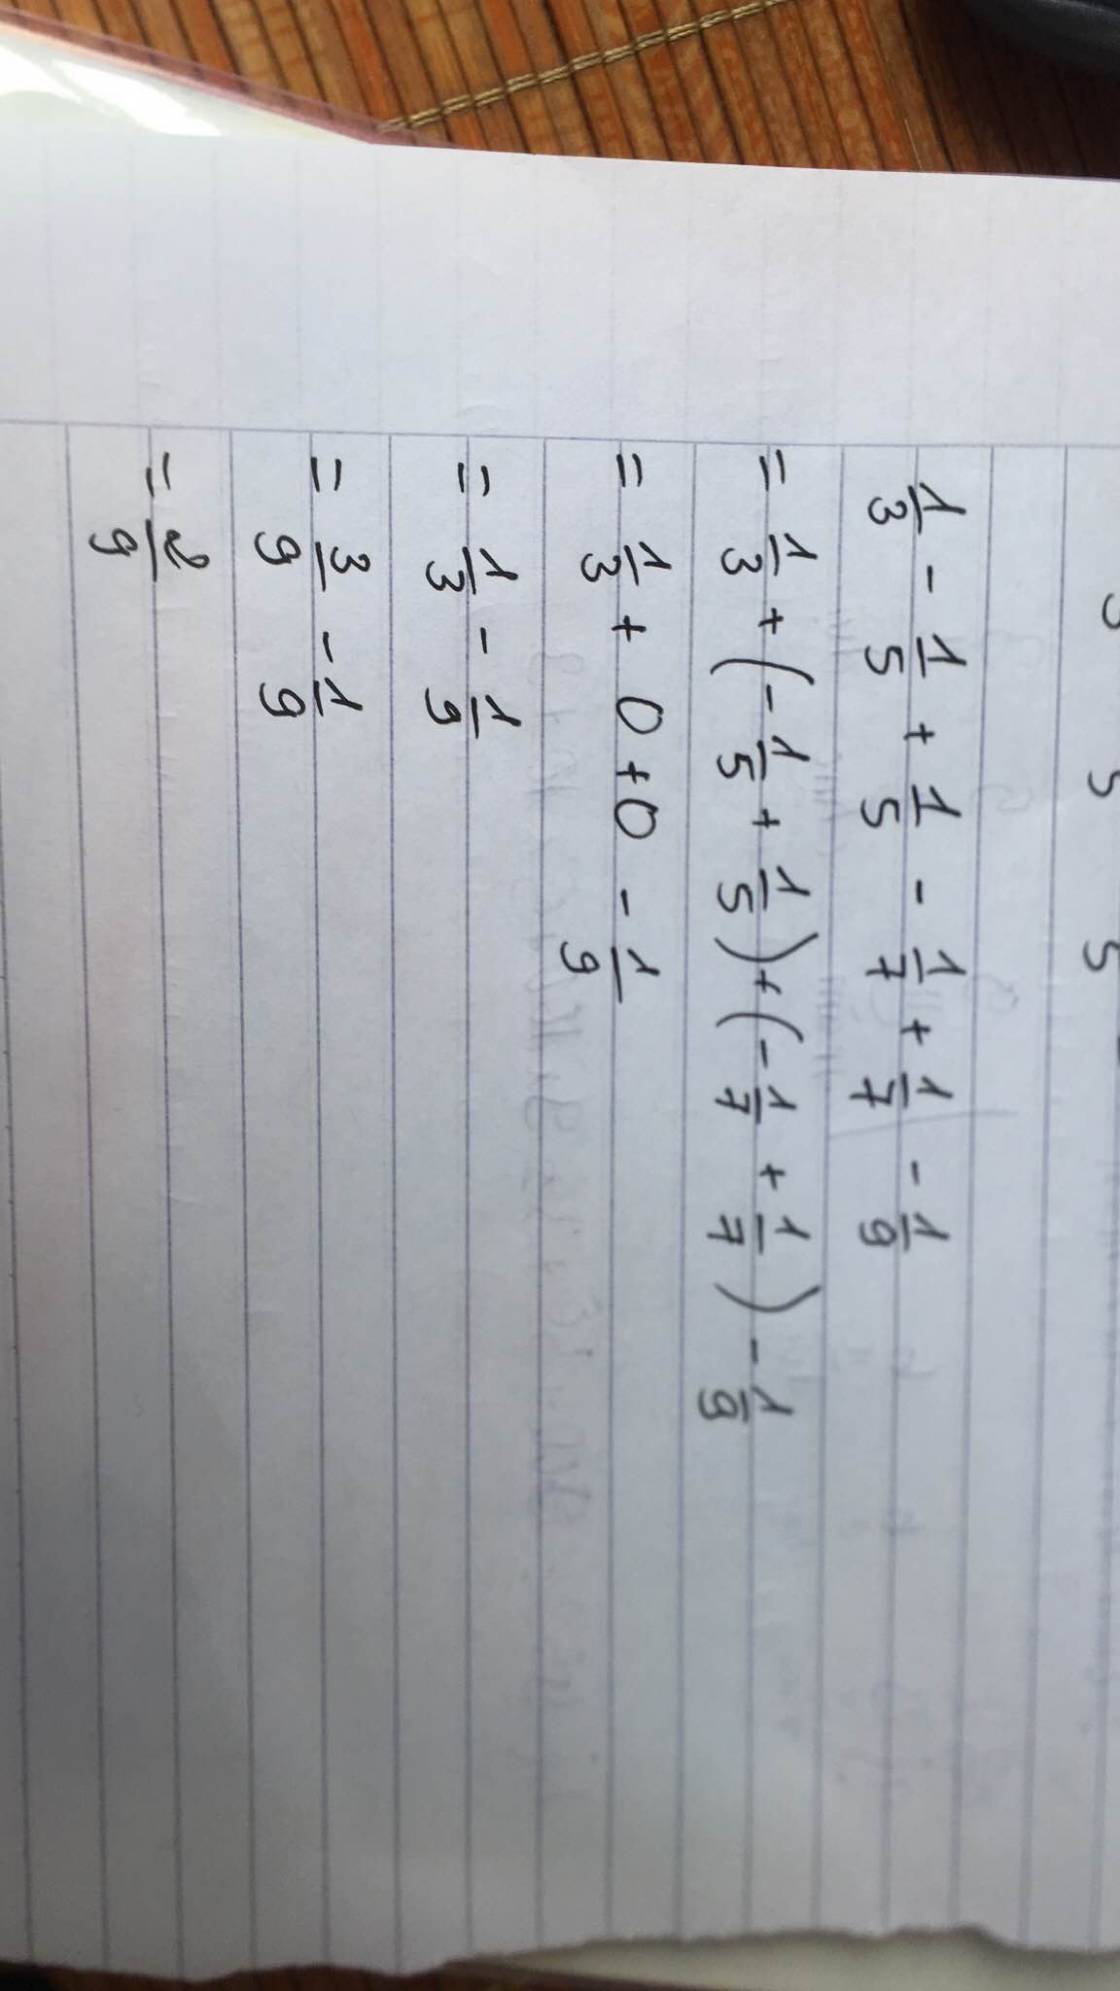 5 5 5
1/3 - 1/5 + 1/5 - 1/7 + 1/7 - 1/9
= 1/3 + (-1/5 + 1/5) + (-1/7 + 1/7) - 1/9
= 1/3 + 0 + 0 - 1/9
= 1/3 - 1/9
= 3/9 - 1/9
= 2/9